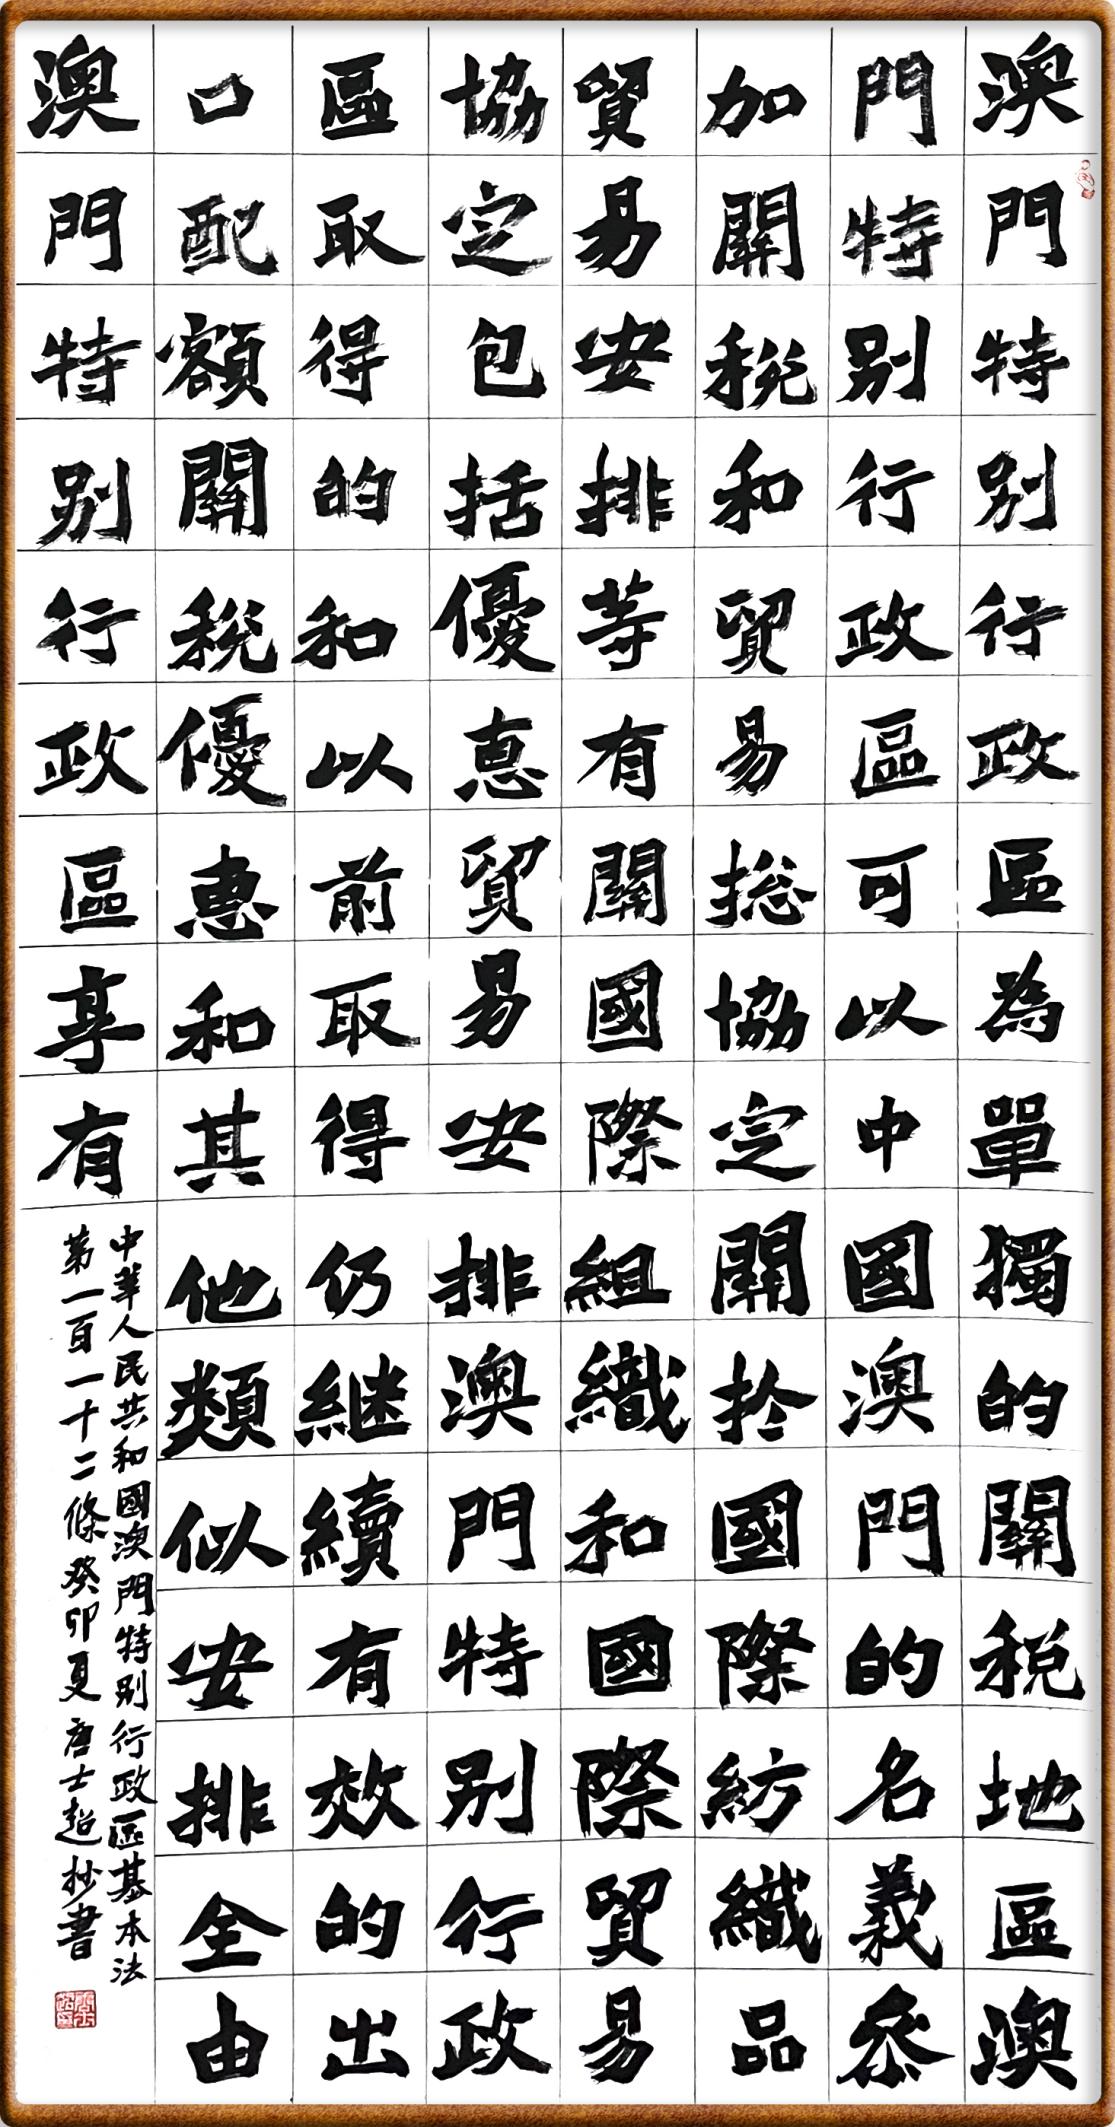 澳門特別行政區為單獨的關稅地區澳
門特別行政區可以中國澳門的名義叅
加關稅和貿易総協定關扵國際紡織品
貿易安排等有關國際組織和國際貿易
協定包括優恵貿易安排澳門特別行政
區取得的和以前取得仍継續有效的出
口配額關稅優惠和其他類似安排全由
澳門特別行政區享有
中華人民共和國澳門特別行政區基本法
第一百一十二條癸卯夏唐士超抄書